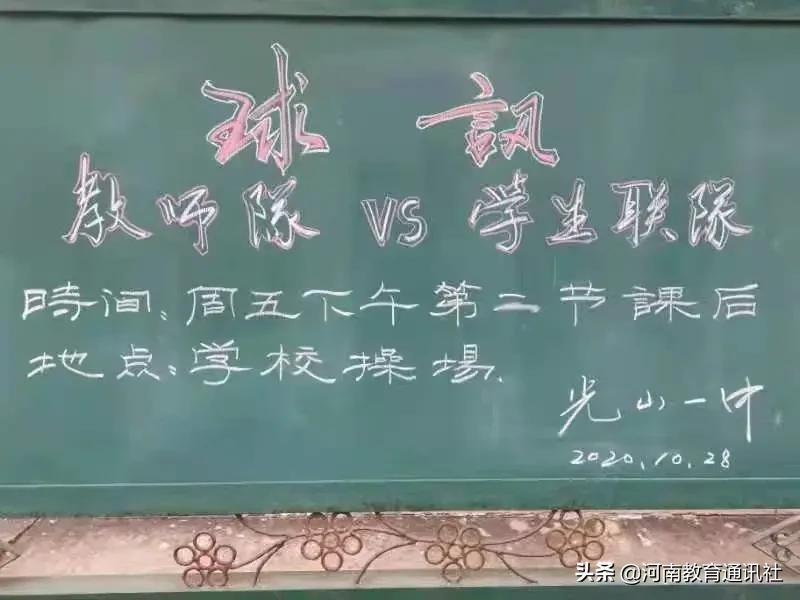 球訊
教师隊 VS 学生联隊
時间:周五下午第二节課后
地点:学校操場.
光山一中
2020.10.28
头条 @河南教育通讯社